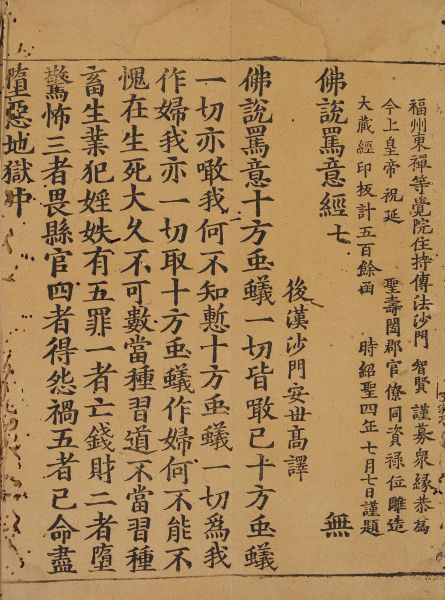 福州東禪等覺院住持傳法沙門 智賢 謹募衆緣恭爲
今上皇帝祝延 聖壽闔郡官僚同資祿位雕造
大藏經印板計五百餘函 時紹聖四年七月七日謹題
佛說罵意經七 無
後漢沙門安世高譯
佛說罵意十方䖝蟻一切皆噉已十方䖝蟻
一切亦噉我何不知慙十方䖝蟻一切爲我
作婦我亦一切取十方䖝蟻作婦何不能不
愧在生死大久不可數當種習道不當習種
畜生業犯婬妷有五罪一者亡錢財二者墮
驚怖三者畏縣官四者得怨禍五者已命盡
墮惡地獄中